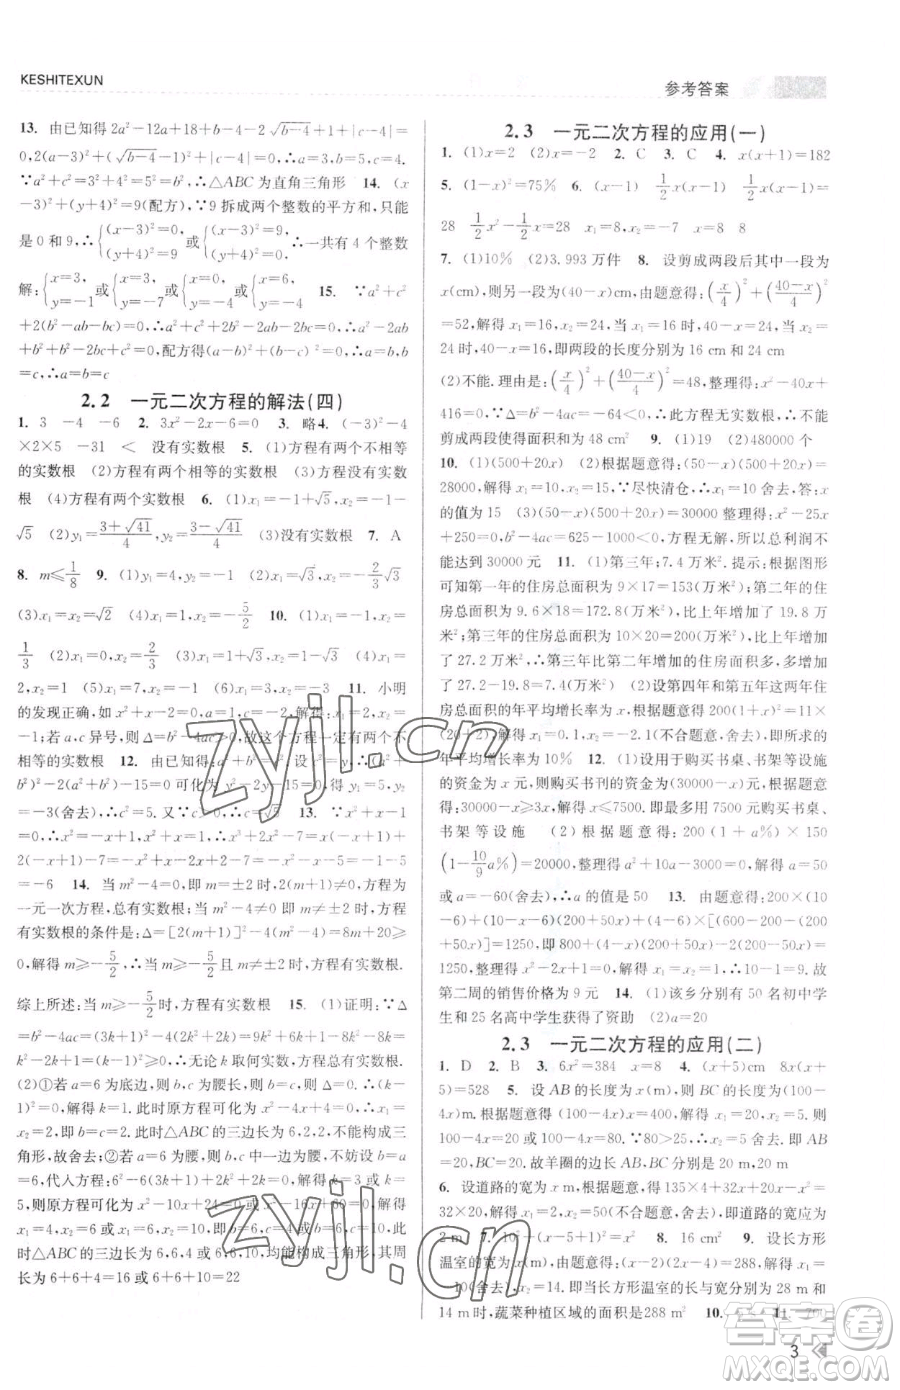 KESHITEXUN
参考答案
13. 由已知得 2a²-12a+18+b-4-2√(b-4)+1+|c-4|=
0,2(a-3)²+(√(b-4)-1)²+|c-4|=0,∴a=3,b=5,c=
4.∵a²+c²=3²+4²=5²=b²,∴△ABC为直角三角形 14. (x
-3)²+(y+4)²=9(配方),∵9拆成两个整数的平方和,只能
是0和9,∴{(x-3)²=0,(y+4)²=9 或{(x-3)²=9,(y+4)²=0,∴一共有4个整数
解:{x=3,y=-1 或{x=3,y=-7 或{x=0,y=-4 或{x=6,y=-4 15. ∵a²+c²
+2(b²-ab-bc)=0,∴a²+c²+2b²-2ab-2bc=0,∴a²-2ab
+b²+b²-2bc+c²=0,配方得(a-b)²+(b-c)²=0,∴a=b,b=
c,∴a=b=c
2.2 一元二次方程的解法(四)
1. 3 -4 -6 2. 3x²-2x-6=0 3. 略 4. (-3)²-4
×2×5 -31 < 没有实数根 5. (1)方程有两个不相等
的实数根 (2)方程有两个相等的实数根 (3)方程没有实数
根 (4)方程有两个实数根 6. (1)x₁=-1+√5,x₂=-1-
√5 (2)y₁=(3+√41)/4,y₂=(3-√41)/4 (3)没有实数根 7. A
8. m≤1/8 9. (1)y₁=4,y₂=-1 (2)x₁=2+√3,x₂=2-√3
(3)x₁=x₂=√2 (4)x₁=0,x₂=-5/2 10. (1)x₁=-1,x₂=
1/3 (2)y₁=y₂=2 (3)x₁=1+√3,x₂=1-√3 (4)x₁=
1,x₂=5 (5)x₁=3,x₂=1 (6)x₁=-1,x₂=4 11. 小明
的发现正确,如x²+x-2=0,a=1,c=-2,解得:x₁=1,x₂=
-2;若a,c异号,则△=b²-4ac>0,故这个方程一定有两个不
相等的实数根 12. 由题意得:a²+b²=c²,设c²=x,则(a²+
b²)²-2(a²+b²)-15=0可化为x²-2x-15=0,解得:x₁=
-3(舍去),x₂=5.∴c²=5.又∵c>0,∴c=√5 13. ∵x²+x-1
=0,∴x²=1-x,x²+x=1,∴2x²+3x²-x=2x(1-x)+
2(1-x)+x²-x-7=-x²+x²-x-5=-x²-x-5=-1-5
=-6 14. 当m²-4=0,即m=±2时,2(m-1)≠0,方程为
一元一次方程,总有实数根;当m²-4≠0,即m≠±2时,方程有
实数根的条件是:△=[2(m+1)]²-4(m²-4)=8m+20≥
0,解得m≥-5/2.∴当m≥-5/2且m≠±2时,方程有实数根.
综上所述:当m≥-5/2时,方程有实数根 15. (1)证明:∵△
=b²-4ac=(3k+1)²-4(2k²+2k)=9k²+6k+1-8k²-8k=
k²-2k+1=(k-1)²≥0,∴无论k取何实数,方程总有实数根
(2)①若a=6为底边,则b,c为腰长,则b=c,则△=0.∴(k-1)²
=0,解得k=1.此时原方程化为x²-4x+4=0,∴x₁=x₂=2,
即b=c=2.此时△ABC的三边长为6,2,2,不能构成三角形,
故舍去;②若a=6为腰,则b,c中一边为腰,不妨设b=a=
6,代入方程:6²-6(3k+1)+2k²+2k=0,∴解得k=3或k=
5,则原方程可化为x²-10x+24=0或x²-16x+60=0,解得
x₁=4,x₂=6或x₁=6,x₂=10,∴b=6,c=4或b=6,c=10,
此时△ABC的三边长为6,6,4或6,6,10,均能构成三角形,其周
长为6+6+4=16或6+6+10=22
2.3 一元二次方程的应用(一)
1. (1)x=2 (2)x=-2 2. C 3. C 4. x(x-1)=182
5. (1-x)²=75% 6. (x-1) 1/2x(x-1) 1/2x(x-1)=
28 1/2x²-1/2x=28 x₁=8,x₂=-7 x=8 8
7. (1)10% (2)3.993万件 8. 设剪成两段后其中一段为
x(cm),则另一段为(40-x)cm,由题意得:(x/4)²+((40-x)/4)²
=52,解得x₁=16,x₂=24,当x₁=16时,40-x=24,当x₂=
24时,40-x=16,即两段的长度分别为16cm和24cm
(2)不能.理由:(x/4)²+((40-x)/4)²=48,整理得:x²-40x+
416=0,∵△=b²-4ac=-64<0,∴此方程无实数根,∴不能
剪成两段使得面积和为48cm² 9. (1)19 (2)480000个
10. (1)(500+20x) (2)根据题意得:(50-x)(500+20x)=
28000,解得x₁=10,x₂=15.∵尽快清仓,∴x=10舍去,答:x
的值为15 (3)(50-x)(500+20x)=30000整理得x²-25x
+250=0,∵△=b²-4ac<0,∴方程无解,∴总利润不
能达到30000元 11. (1)第三年;7.4万米².提示:根据图形
可知第一年的住房总面积为9×17=153(万米²);第二年的住
房总面积为9.6×18=172.8(万米²),比上年增加了19.8万
米²;第三年的住房总面积为10×20=200(万米²),比上年增加
了27.2万米²,∴第三年比第二年增加的住房面积多,多增加
了27.2-19.8=7.4(万米²) (2)设第四年和第五年这两年住
房总面积的年平均增长率为x,由题意得200(1+x)²=11×
22,解得:x₁=0.1,x₂=-2.1(不合题意,舍去),∴x=0.1.答:
年平均增长率为10% 12. (1)设用于购买书桌、书架等设施
的资金为x元,则购买书刊的资金为(30000-x)元,根据题意
得:30000-x≥3x,解得x≤7500.即最多用7500元购买书桌、
书架等设施 (2)根据题意得:200(1+a%)×150
(1-10/9a%)=20000,整理得a²+10a-3000=0,解得a=50
或a=-60(舍去),∴a的值是50 13. 由题意得:200×(10
-6)+(10-x-6)(200+50x)+(4-6)×[(600-200)-(200
+50x)]=1250,即800+(4-x)(200+50x)-2(200-50x)=
1250,整理得x²-2x+1=0,解得x₁=x₂=1,∴10-1=9.故
第二周的销售价格为9元 14. (1)该乡分别有50名初中学
生和25名高中学生获得了资助 (2)a=20
2.3 一元二次方程的应用(二)
1. D 2. B 3. 6x²=384 x=8 4. (x+5)cm 8x(x-
5)=528 5. 设AB的长度为x(m),则BC的长度为(100-
4x)m.根据题意得(100-4x)x=400,解得x₁=20,x₂=5,则
100-4x=20或80.∵80>25,∴x₂=5舍去.即AB
=20,BC=20.故羊圈的边长AB,BC分别是20m,20m
6. 设道路的宽为x m,则根据题意得135×4+32x+20x-x²=
32×20,解得x₁=2,x₂=50(不合题意,舍去),即道路的宽应为
2m 7. 10²+(x-5+1)²=x² 8. 16cm² 9. 设长方形
解得:x₁=
-10(舍去),x₂=14.即当长方形温室的长与宽分别为28m和
14m时,蔬菜种植区域的面积是288m² 10.
3
zyjl.cn
zyjl.cn
答案圈
MXQE.COM